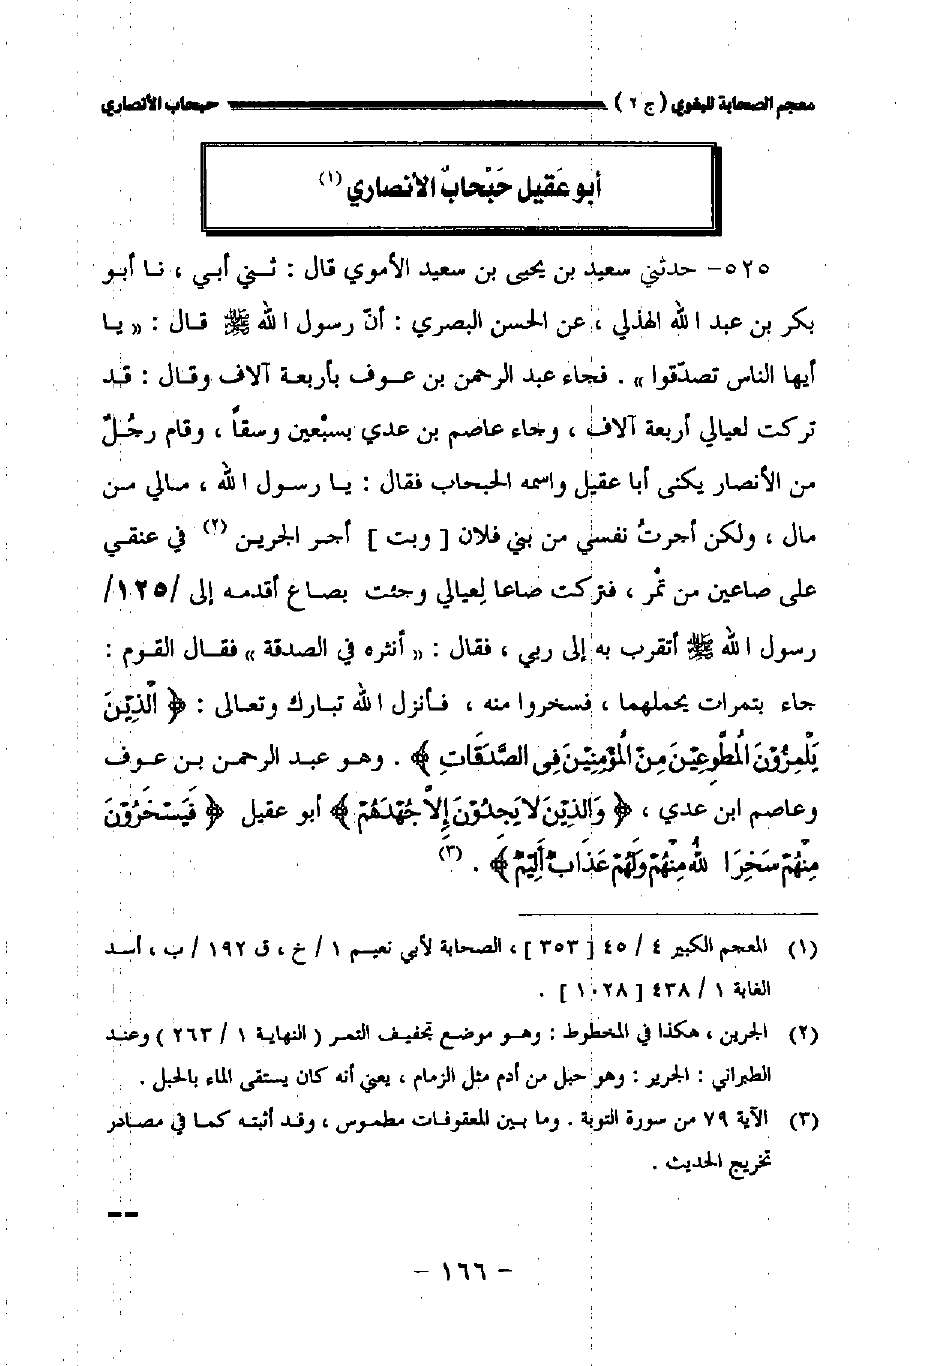 معجم الصحابة للبغوي ( ج ٢ ) حبحاب الأنصاري
أبو عَقيل حَبْحابٌ الأنصاري (١)
٥٢٥- حدثني سعيد بن يحيى بن سعيد الأموي قال : ثـني أبي ، نـا أبـو
بكر بن عبد الله الهذلي ، عن الحسن البصري : أنّ رسول الله ﷺ قـال : « يـا
أيها الناس تصدّقوا » . فجاء عبد الرحمن بن عـوف بأربعـة آلاف وقـال : قـد
تركت لعيالي أربعة آلاف ، وجاء عاصم بن عدي بسبْعين وسقاً ، وقام رجُـلٌ
من الأنصار يكنى أبا عقيل واسمه الحبحاب فقال : يـا رسـول الله ، مـالي مـن
مال ، ولكن أجرتُ نفسي من بني فلان [ وبت ] أجـر الجريـن (٢) في عنقـي
على صاعين من تمْر ، فتركت صاعا لِعيالي وجئت بصـاع أقدمـه إلى /١٢٥/
رسول الله ﷺ أتقرب به إلى ربي ، فقال : « أنثره في الصدقة » فقـال القـوم :
جاء بتمرات يحملهما ، فسخروا منه ، فـأنزل الله تبـارك وتعـالى : ﴿ الَّذِيْنَ
يَلْمِزُوْنَ الْمُطَّوِعِيْنَ مِنَ الْمُؤْمِنِيْنَ فِى الصَّدَقَاتِ ﴾ . وهـو عبـد الرحمـن بـن عـوف
وعاصم ابن عدي ، ﴿ وَالَّذِيْنَ لاَ يَجِدُوْنَ إِلاَّ جُهْدَهُمْ ﴾ أبو عقيل ﴿ فَيَسْخَرُوْنَ
مِنْهُمْ سَخِرَ اللهُ مِنْهُمْ وَلَهُمْ عَذَابٌ أَلِيْمٌ ﴾ . (٣)
(١) المعجم الكبير ٤ / ٤٥ [ ٣٥٣ ] ، الصحابة لأبي نعيـم ١ / خ ، ق ١٩٢ / ب ، أسـد
الغابة ١ / ٤٣٨ [ ١٠٢٨ ] .
(٢) الجرين ، هكذا في المخطوط : وهـو موضـع تجفيـف التمـر ( النهايـة ١ / ٢٦٣ ) وعنـد
الطبراني : الجرير : وهو حبل من أدم مثل الزمام ، يعني أنه كان يستقى الماء بالحبل .
(٣) الآية ٧٩ من سورة التوبة . وما بـين المعقوفـات مطمـوس ، وقـد أثبتـه كمـا في مصـادر
تخريج الحديث .
- ١٦٦ -